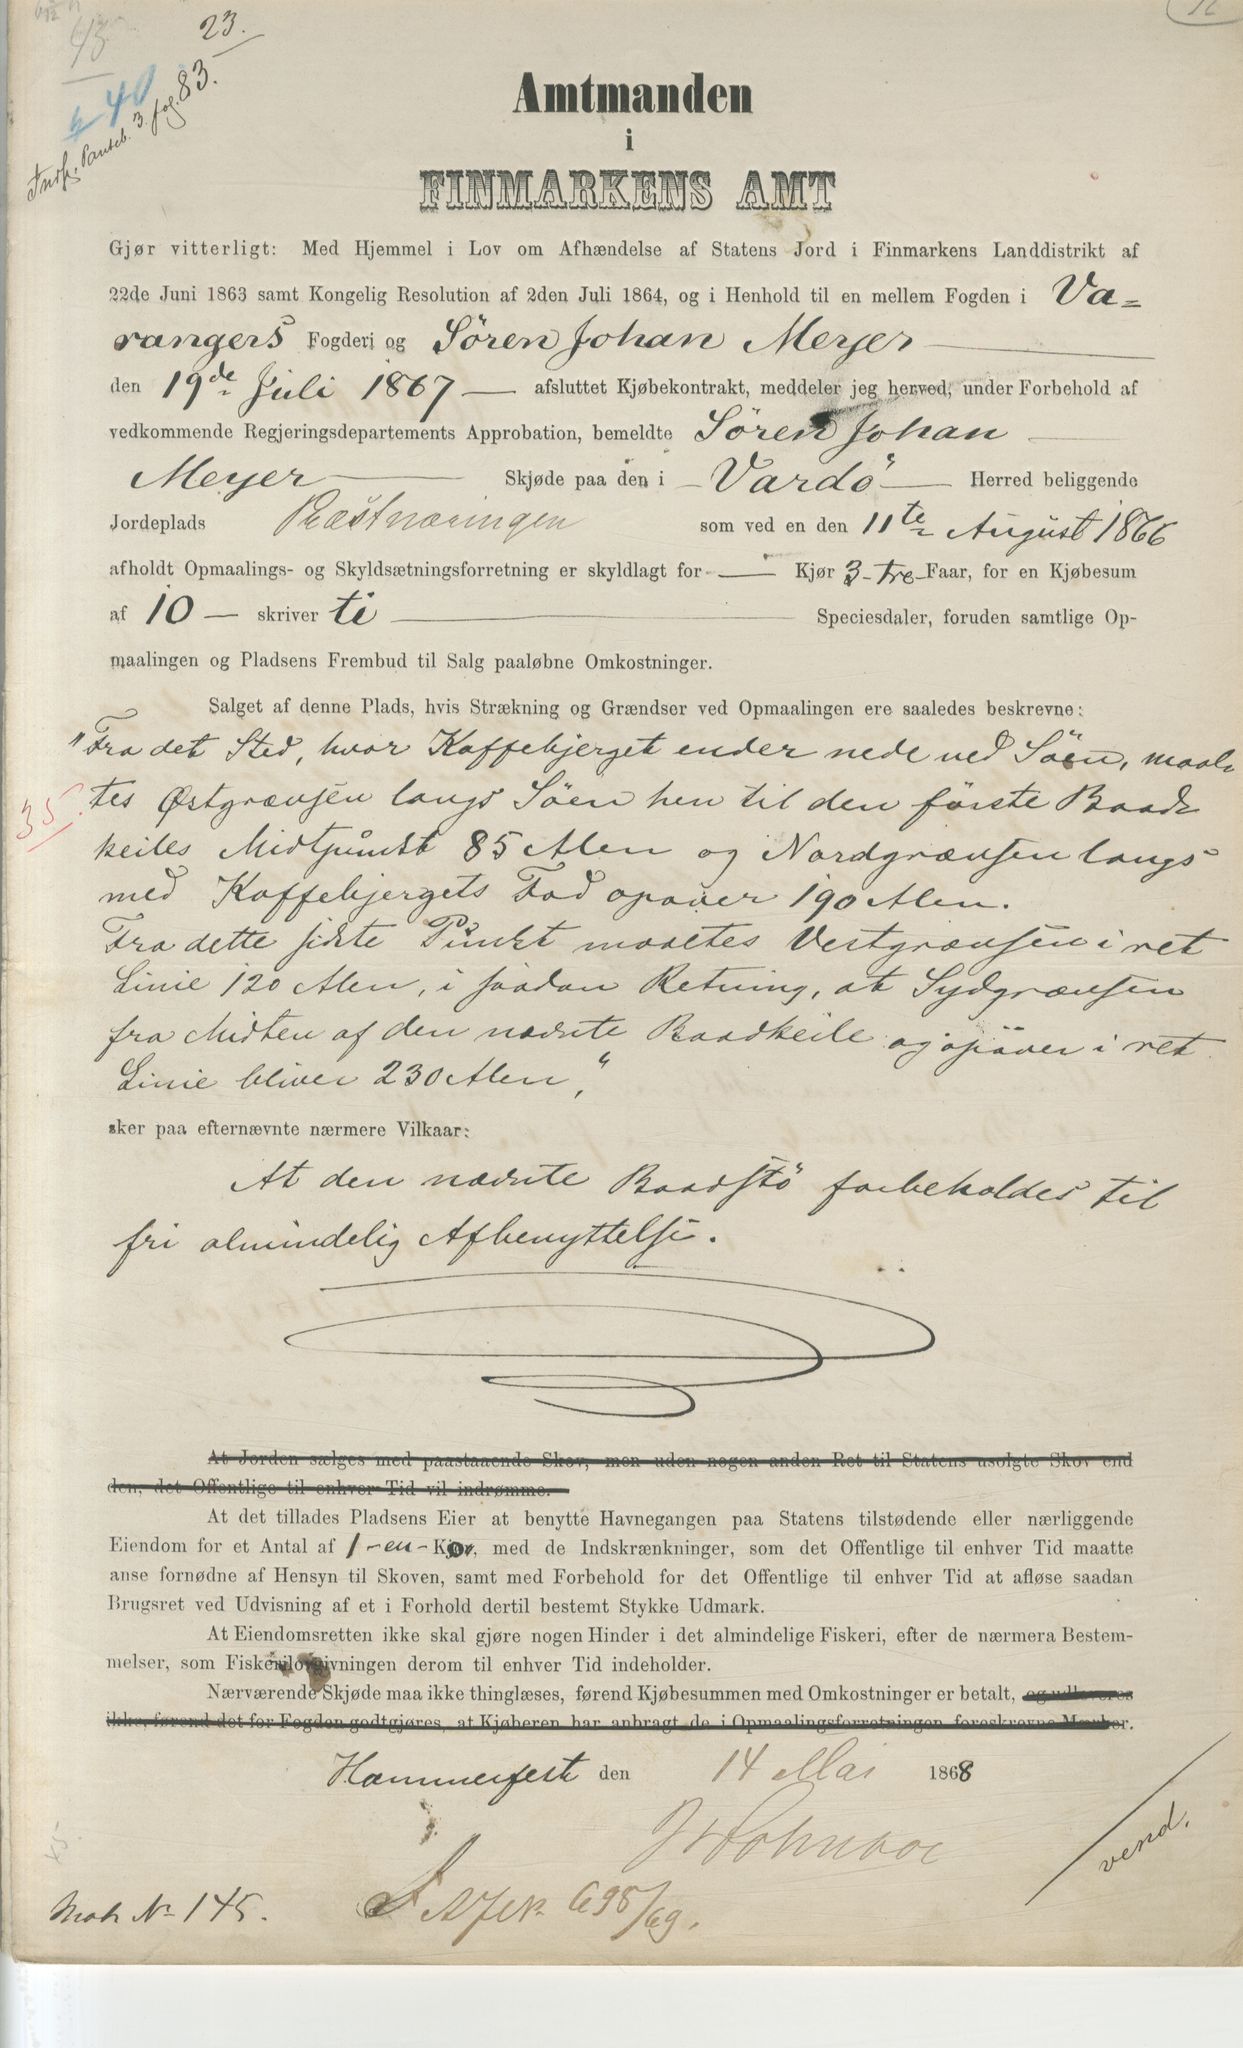 23.
43
40
Indf. Panteb. 3. fol. 83.
Amtmanden
i
FINMARKENS AMT
Gjør vitterligt: Med Hjemmel i Lov om Afhændelse af Statens Jord i Finmarkens Landdistrikt af
22de Juni 1863 samt Kongelig Resolution af 2den Juli 1864, og i Henhold til en mellem Fogden i Va-
rangers Fogderi og Sören Johan Meyer
den 19de Juli 1867 — afsluttet Kjøbekontrakt, meddeler jeg herved, under Forbehold af
vedkommende Regjeringsdepartements Approbation, bemeldte Sören Johan
Meyer — Skjøde paa den i — Vardö — Herred beliggende
Jordeplads Præstnæringen som ved en den 11te August 1866
afholdt Opmaalings- og Skyldsætningsforretning er skyldlagt for — Kjør 3 - tre - Faar, for en Kjøbesum
af 10 — skriver ti — Speciesdaler, foruden samtlige Op-
maalingen og Pladsens Frembud til Salg paaløbne Omkostninger.
Salget af denne Plads, hvis Strækning og Grændser ved Opmaalingen ere saaledes beskrevne:
"Fra det Sted, hvor Kaffebjerget ender nede ved Söen, maal-
35.
tes Østgrænsen langs Söen hen til den förste Baad-
keiles Midtpunkt 85 Alen og Nordgrænsen langs
med Kaffebjergets Fod opover 190 Alen.
Fra dette sidste Punkt maaltes Vestgrænsen i ret
Linie 120 Alen, i saadan Retning, at Sydgrænsen
fra Midten af den nævnte Baadkeile og opover i ret
Linie bliver 230 Alen,"
sker paa efternævnte nærmere Vilkaar:
At den nævnte Baadstö forbeholdes til
fri almindelig Afbenyttelse.
At Jorden sælges med paastaaende Skov, men uden nogen anden Ret til Statens usolgte Skov end
den, det Offentlige til enhver Tid vil indrømme.
At det tillades Pladsens Eier at benytte Havnegangen paa Statens tilstødende eller nærliggende
Eiendom for et Antal af 1 - en - Ko, med de Indskrænkninger, som det Offentlige til enhver Tid maatte
anse fornødne af Hensyn til Skoven, samt med Forbehold for det Offentlige til enhver Tid at afløse saadan
Brugsret ved Udvisning af et i Forhold dertil bestemt Stykke Udmark.
At Eiendomsretten ikke skal gjøre nogen Hinder i det almindelige Fiskeri, efter de nærmera Bestem-
melser, som Fiskerilovgivningen derom til enhver Tid indeholder.
Nærværende Skjøde maa ikke thinglæses, førend Kjøbesummen med Omkostninger er betalt, og udleveres
ikke, førend det for Fogden godtgjøres, at Kjøberen har anbragt de i Opmaalingsforretningen foreskrevne Mærker.
Hammerfest den 14 Mai 1868
vend.
Matr No 145.
698/69.